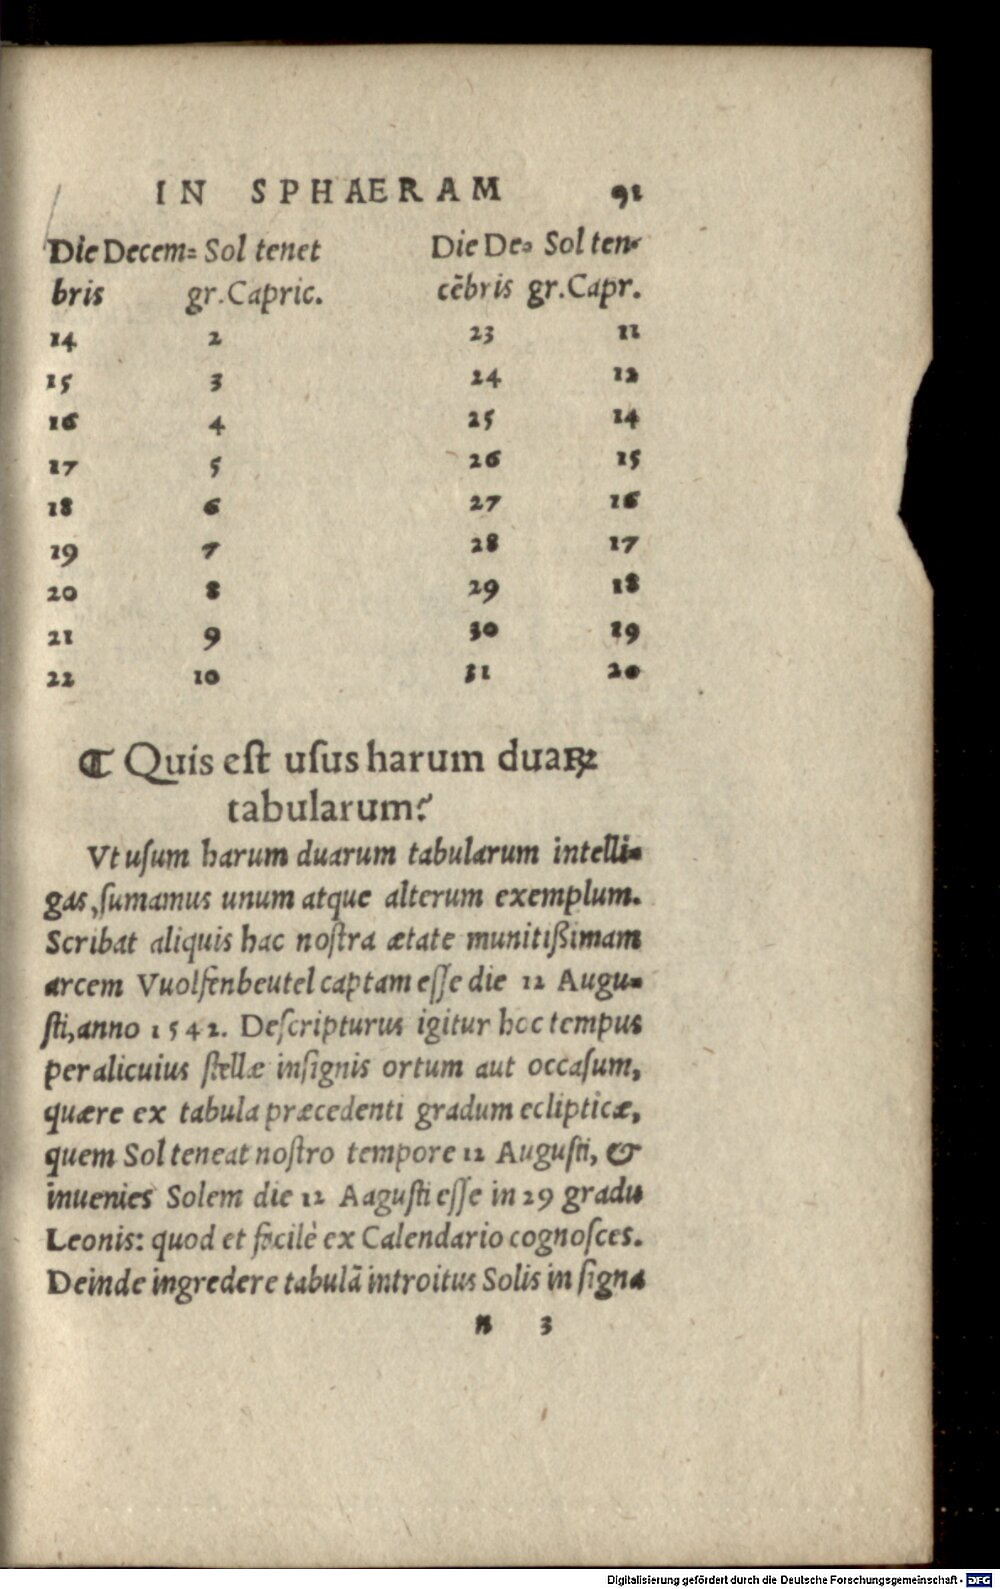 IN SPHAERAM 91
Die Decem= Sol tenet Die De= Sol ten=
bris gr. Capric. cẽbris gr. Capr.
14 2 23 11
15 3 24 12
16 4 25 14
17 5 26 15
18 6 27 16
19 7 28 17
20 8 29 18
21 9 30 19
22 10 31 20
¶ Quis eſt uſus harum duaꝝ
tabularum?
Vt uſum harum duarum tabularum intelli=
gas, ſumamus unum atque alterum exemplum.
Scribat aliquis hac noſtra ætate munitißimam
arcem Vuolfenbeutel captam eſſe die 12 Augu=
ſti, anno 1542. Deſcripturus igitur hoc tempus
per alicuius ſtellæ inſignis ortum aut occaſum,
quære ex tabula præcedenti gradum eclipticæ,
quem Sol teneat noſtro tempore 12 Auguſti, &
inuenies Solem die 12 Aaguſti eſſe in 29 gradu
Leonis: quod et facilè ex Calendario cognoſces.
Deinde ingredere tabulã introitus Solis in ſigna
n 3
Digitalisierung gefördert durch die Deutsche Forschungsgemeinschaft - DFG